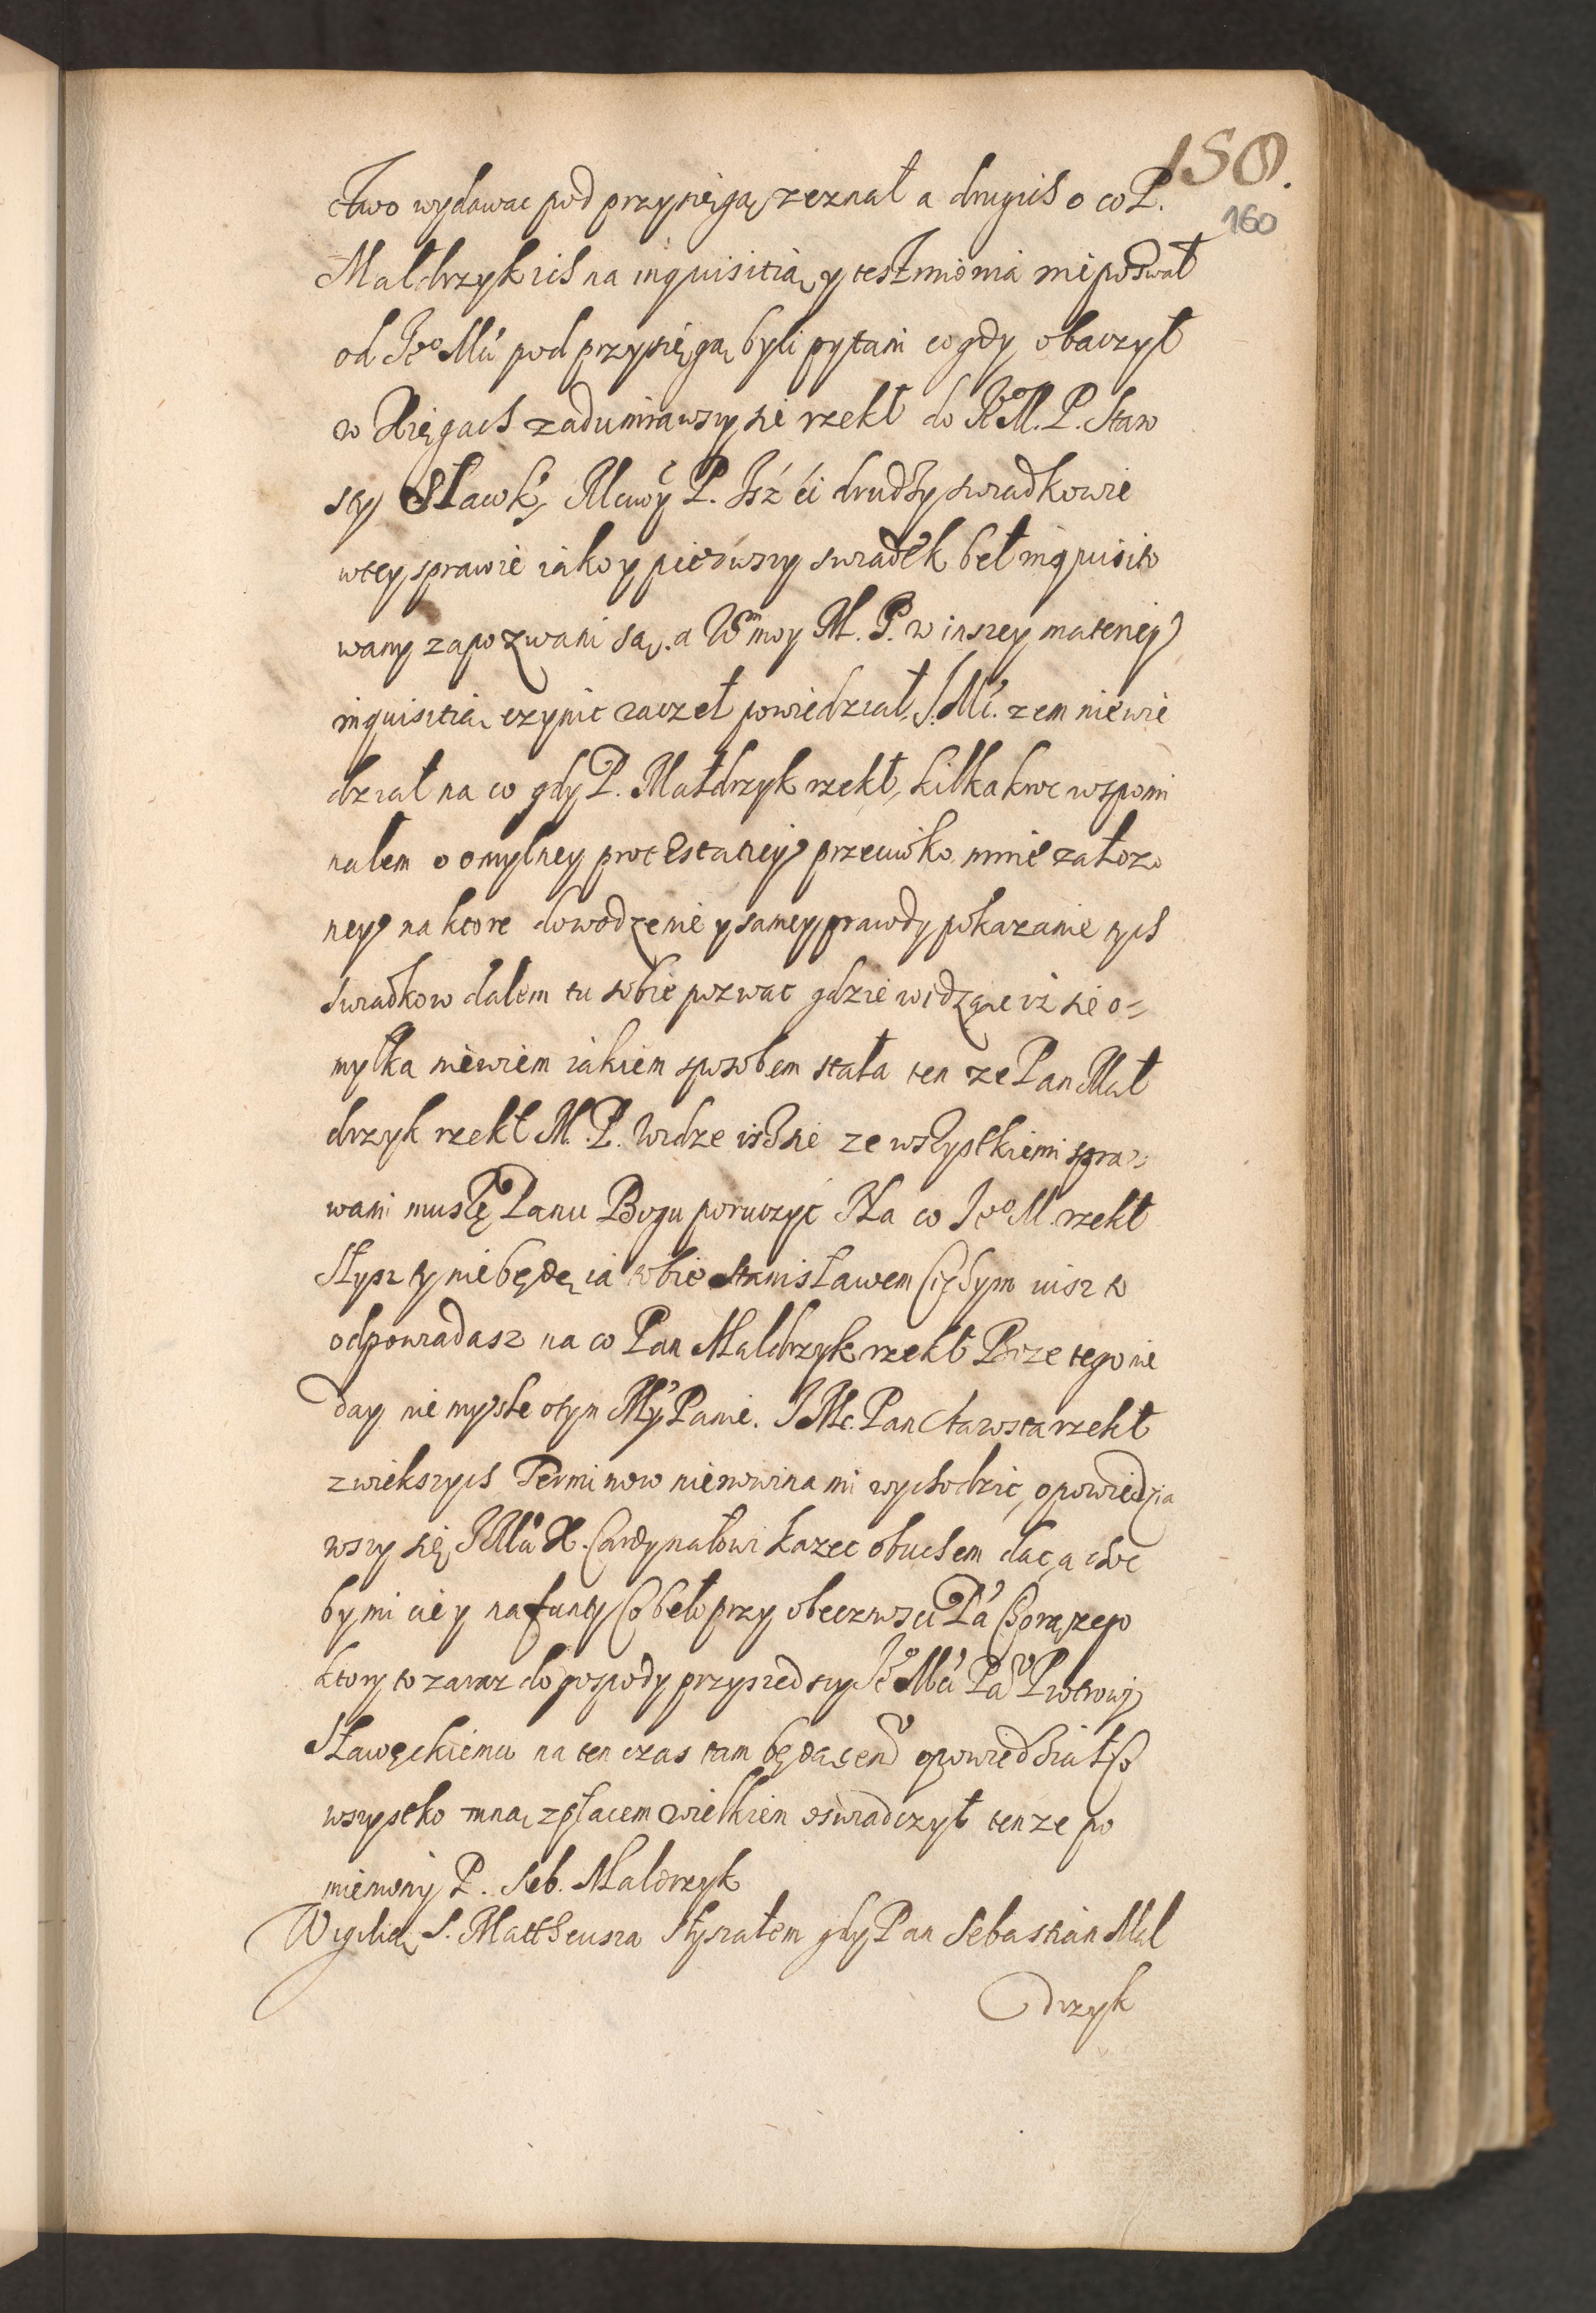 150.
160
ctwo wydawac pod przysięgą zeznał a drugich o co P.
Maldrzyk ich na inquisitią y testimonia nie pozwał
od Jeo Mci pod przysięgą byli pytani co gdy obaczył
w Xięgach zadumiawszy sie rzekł do Jeo M. P. Staw
sty Mciwy P. Iż ci drudzy swiadkowie
wtey sprawie iako y pierwszy swiadek beł inquisito
wany zapozwani są. a Wm moy M. P. w inszey materiey
inquisitią czynic zaczeł powiedział J. Mc. zem niewie
dział na co gdy P. Małdrzyk rzekł, kilkakroc wspomi
nałem o omylney protestaciey przeciwko mnie załozo
ney na ktore dowodzenie y samey prawdy pokazanie tych
swiadkow dałem tu sobie pozwac gdzie widzące iż sie o=
myłka niewiem iakiem sposobem stała ten ze Pan Mał
drzyk rzekł M. P. Widze isz sie ze wszystkiemi spra=
wami muszę Panu Bogu poruczyć Na co Jeo M. rzekł
słysz ty nie będę ia tobie Stanisławem
odpowiadasz na co Pan Maldrzyk rzekł Boze tego nie
day nie mysle o tym Mcy Panie. J Mc. Pan Stawsta rzekł
z wiekszych Terminow nie nowina mi wychodzic, opowiedzia
wszy się J Mci X. Cardynałowi kazec obuchem dac a choc
by mi cie y na funty co beło przy obecznosci Pa Chorązego
ktory to zaraz do gospody przyszedszy Jeo Mci Pa Piotrowi
Sławęckiemu na ten czas tam będącemu opowiedział co
wszystko mną z płaczem wielkiem oswiadczył tenze po
mieniony P. Seb. Maldrzyk
Wigilią S. Mattheusza słyszałem gdy Pan Sebastian Mal
drzyk